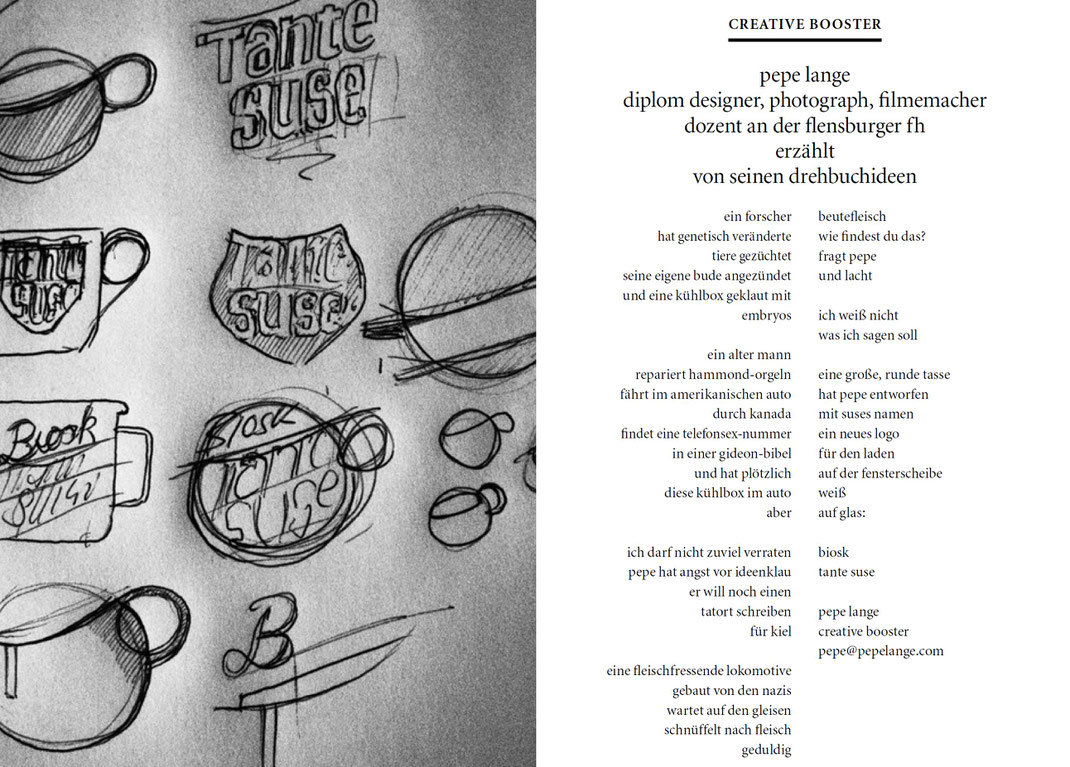 Tante
suse
Tante
suse
Tante
suse
Brosk
Biosk
Tante
suse
B
CREATIVE BOOSTER
pepe lange
diplom designer, photograph, filmemacher
dozent an der flensburger fh
erzählt
von seinen drehbuchideen
ein forscher
hat genetisch veränderte
tiere gezüchtet
seine eigene bude angezündet
und eine kühlbox geklaut mit
embryos
ein alter mann
repariert hammond-orgeln
fährt im amerikanischen auto
durch kanada
findet eine telefonsex-nummer
in einer gideon-bibel
und hat plötzlich
diese kühlbox im auto
aber
ich darf nicht zuviel verraten
pepe hat angst vor ideenklau
er will noch einen
tatort schreiben
für kiel
eine fleischfressende lokomotive
gebaut von den nazis
wartet auf den gleisen
schnüffelt nach fleisch
geduldig
beutefleisch
wie findest du das?
fragt pepe
und lacht
ich weiß nicht
was ich sagen soll
eine große, runde tasse
hat pepe entworfen
mit suses namen
ein neues logo
für den laden
auf der fensterscheibe
weiß
auf glas:
biosk
tante suse
pepe lange
creative booster
pepe@pepelange.com